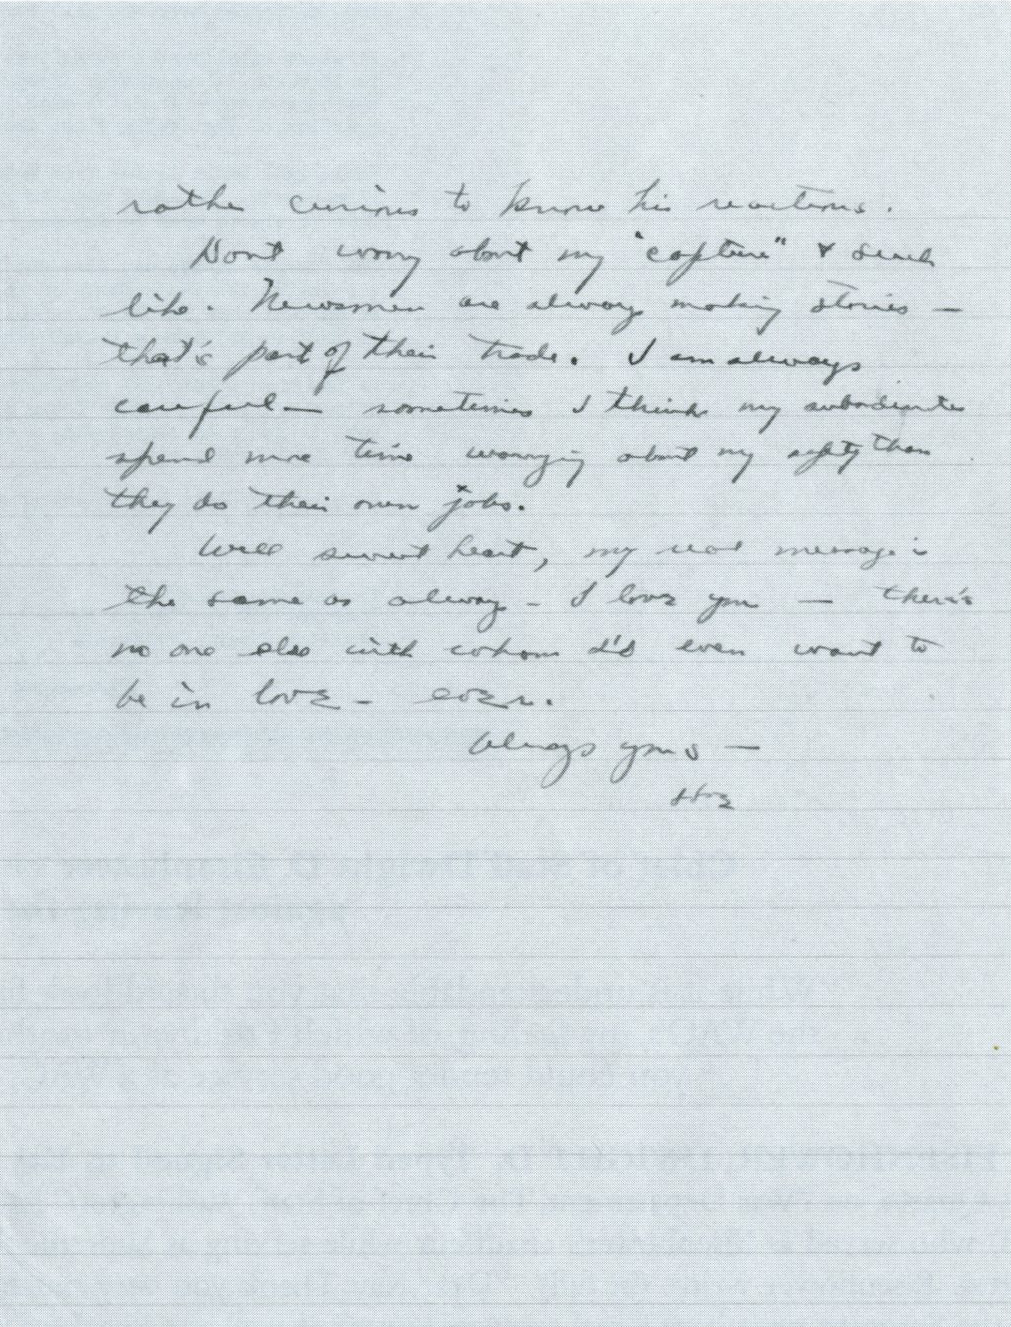 rather curious to know his reactions.
Don't worry about my "capture" & such
like. Newsmen are always making stories —
that's part of their trade. I am always
careful — sometimes I think my subordinates
spend more time worrying about my safety than
they do their own jobs.
Well sweet heart, my real message is
the same as always - I love you — there's
no one else with whom I'd even want to
be in love - ever.
Always yours —